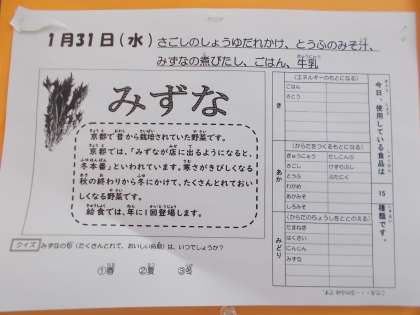 1月31日(水) さごしのしょうゆだれかけ、とうふのみそ汁、
みずなの煮びたし、ごはん、牛乳
みずな
京都で昔から栽培されていた野菜です。
京都では、「みずなが店に出るようになると、
冬本番」といわれています。寒さがきびしくなる
秋の終わりから冬にかけて、たくさんとれておい
しくなる野菜です。
給食では、年に1回登場します。
クイズ みずなの旬(たくさんとれて、おいしい時期)は、いつでしょうか?
①春 ②夏 ③冬
今日、使用している食品は 15 種類です。
き
(エネルギーのもとになる)
ごはん
さとう
あか
(からだをつくるもとになる)
ぎゅうにゅう だしこんぶ
さごし けずりぶし
とうふ ぶたにく
わかめ
あかみそ
しろみそ
みどり
(からだのちょうしをととのえる)
たまねぎ
はくさい
にんじん
みずな